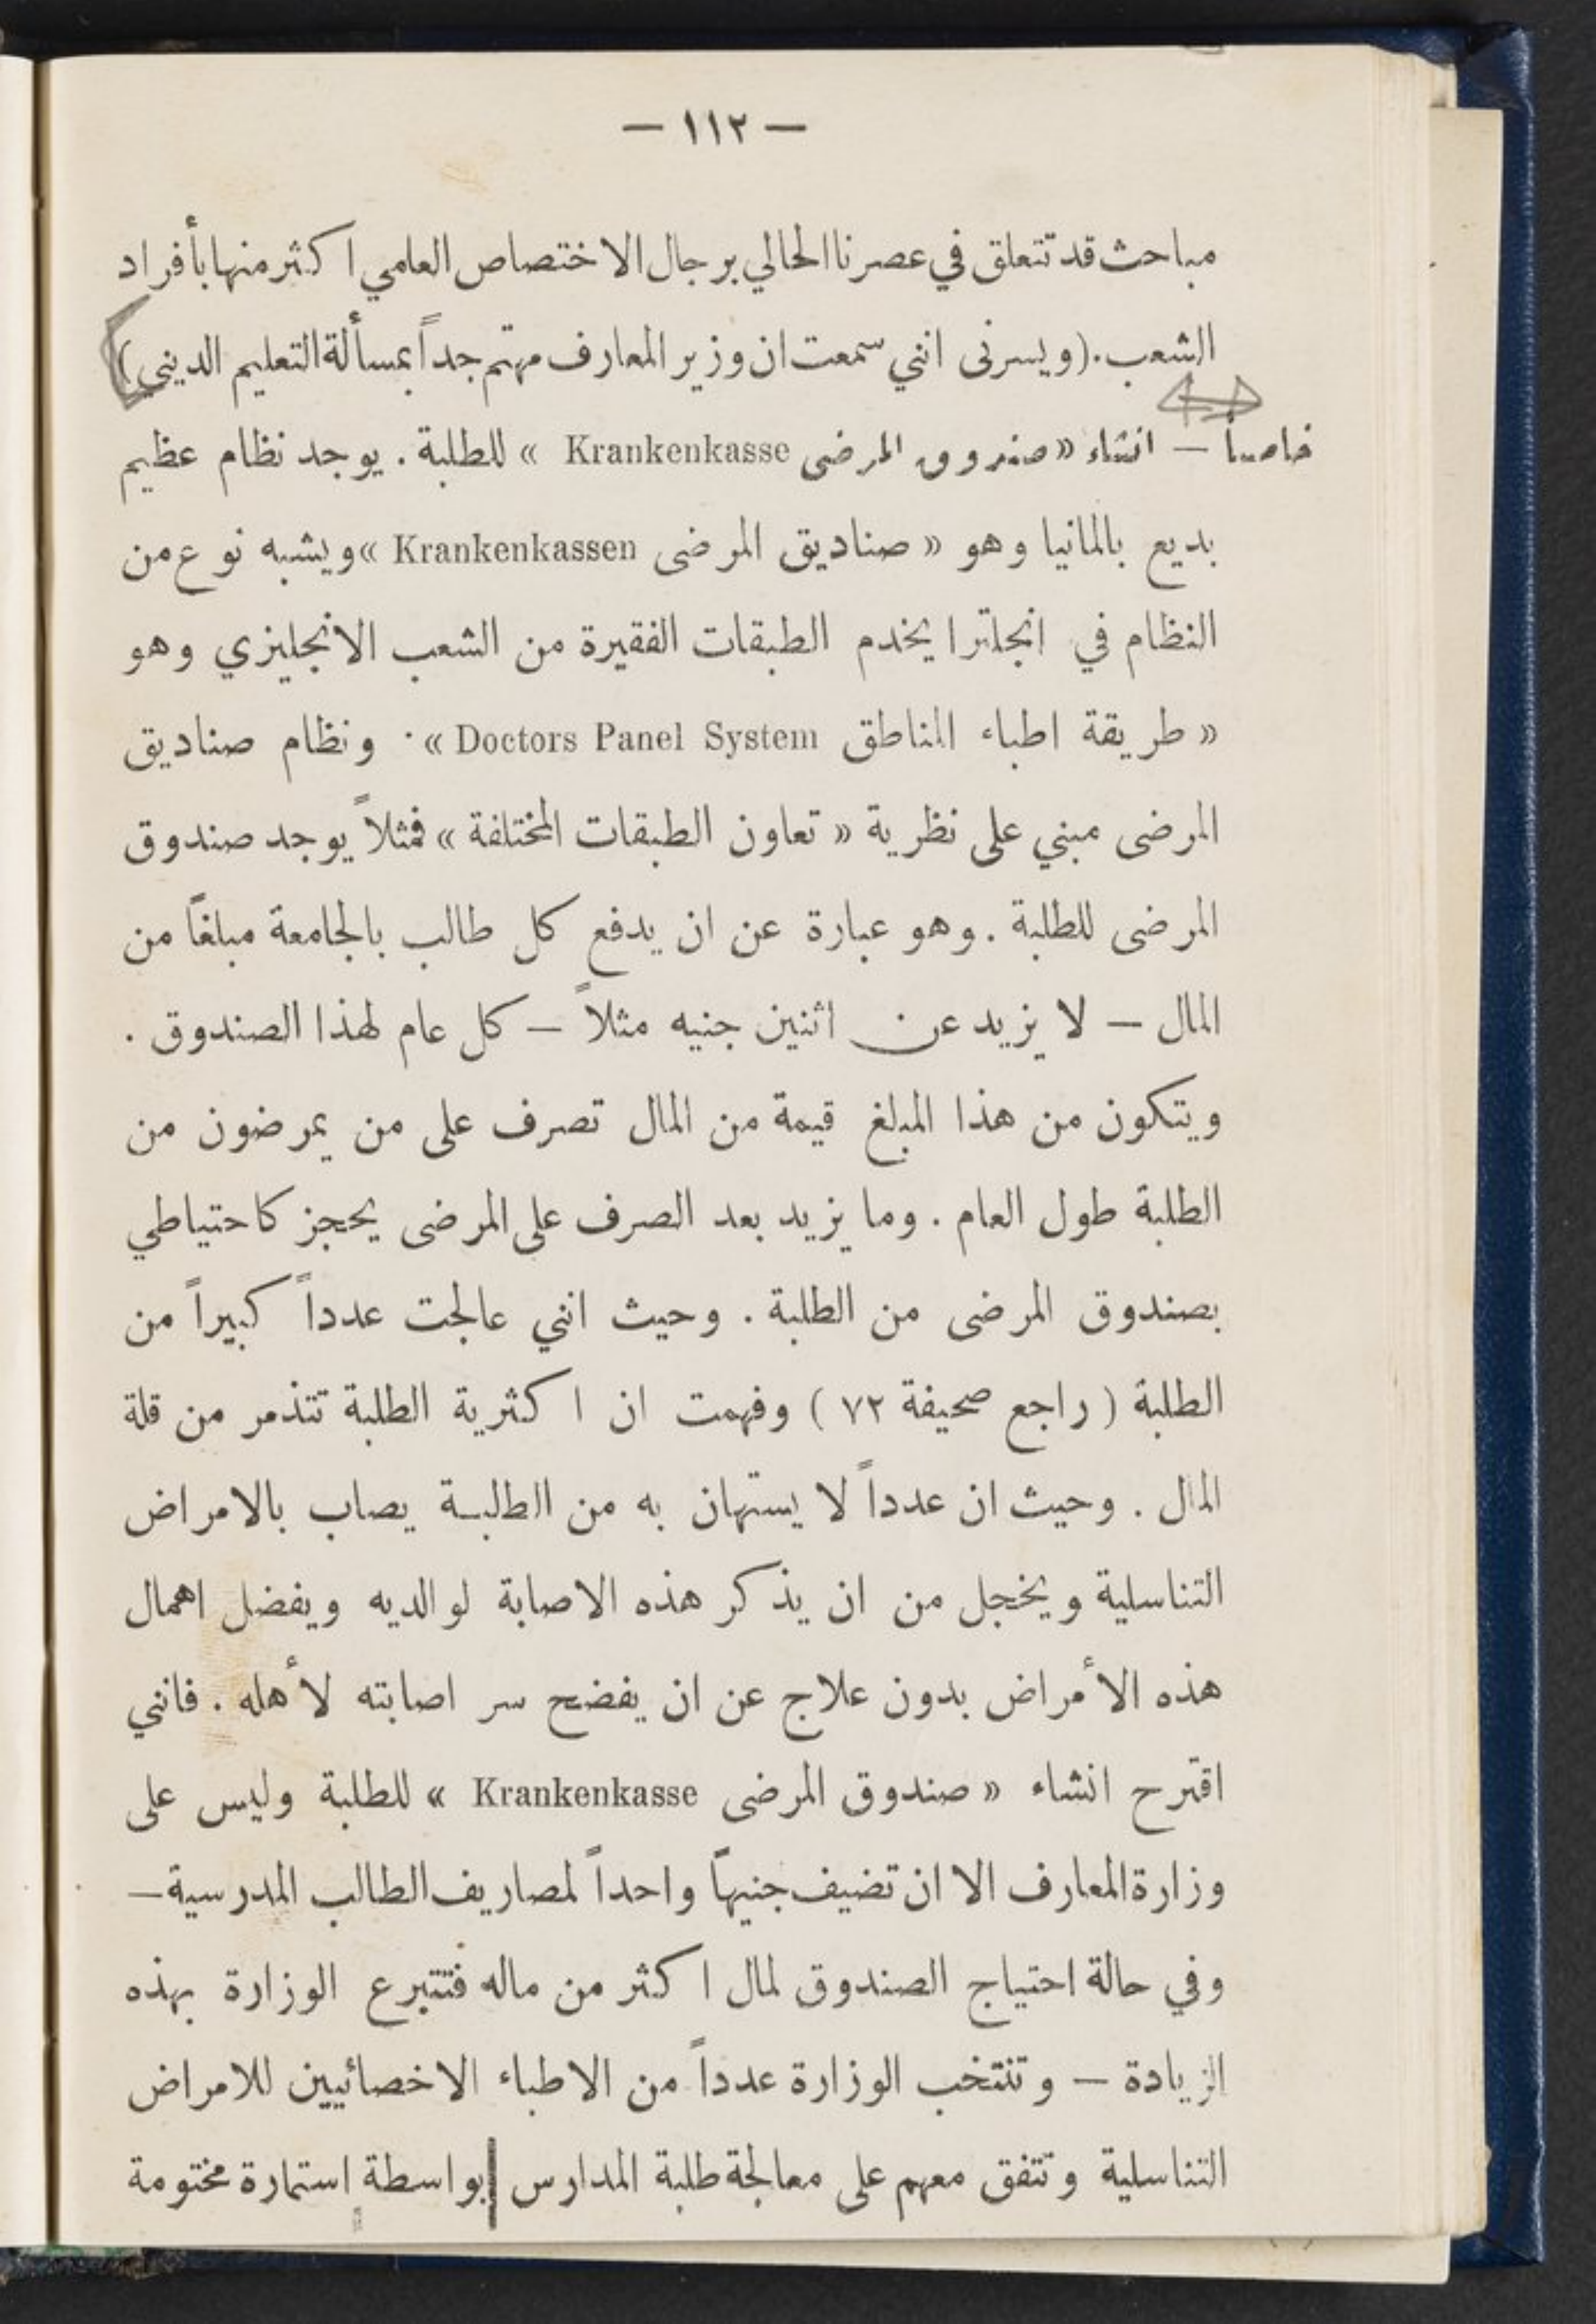 — ١١٢ —
مباحث قد تتعلق في عصرنا الحالي برجال الاختصاص العامي اكثر منها بأفراد
الشعب. (ويسرنى انني سمعت ان وزير المعارف مهتم جداً بمسألة التعليم الديني)
خامساً — انشاء «صندوق المرضى Krankenkasse » للطلبة . يوجد نظام عظيم
بديع بالمانيا وهو « صناديق المرضى Krankenkassen » ويشبه نوع من
النظام في انجلترا يخدم الطبقات الفقيرة من الشعب الانجليزي وهو
« طريقة اطباء المناطق Doctors Panel System » . ونظام صناديق
المرضى مبني على نظرية « تعاون الطبقات المختلفة » فمثلاً يوجد صندوق
المرضى للطلبة . وهو عبارة عن ان يدفع كل طالب بالجامعة مبلغاً من
المال — لا يزيد عن اثنين جنيه مثلاً — كل عام لهذا الصندوق .
ويتكون من هذا المبلغ قيمة من المال تصرف على من يمرضون من
الطلبة طول العام . وما يزيد بعد الصرف على المرضى يحجز كاحتياطي
بصندوق المرضى من الطلبة . وحيث انني عالجت عدداً كبيراً من
الطلبة ( راجع صحيفة ٧٢ ) وفهمت ان اكثرية الطلبة تتذمر من قلة
المال . وحيث ان عدداً لا يستهان به من الطلبة يصاب بالامراض
التناسلية ويخجل من ان يذكر هذه الاصابة لوالديه ويفضل اهمال
هذه الأمراض بدون علاج عن ان يفضح سر اصابته لأهله . فانني
اقترح انشاء « صندوق المرضى Krankenkasse » للطلبة وليس على
وزارة المعارف الا ان تضيف جنيهاً واحداً لمصاريف الطالب المدرسية —
وفي حالة احتياج الصندوق لمال اكثر من ماله فتتبرع الوزارة بهذه
الزيادة — وتنتخب الوزارة عدداً من الاطباء الاخصائيين للامراض
التناسلية وتتفق معهم على معالجة طلبة المدارس بواسطة استمارة مختومة